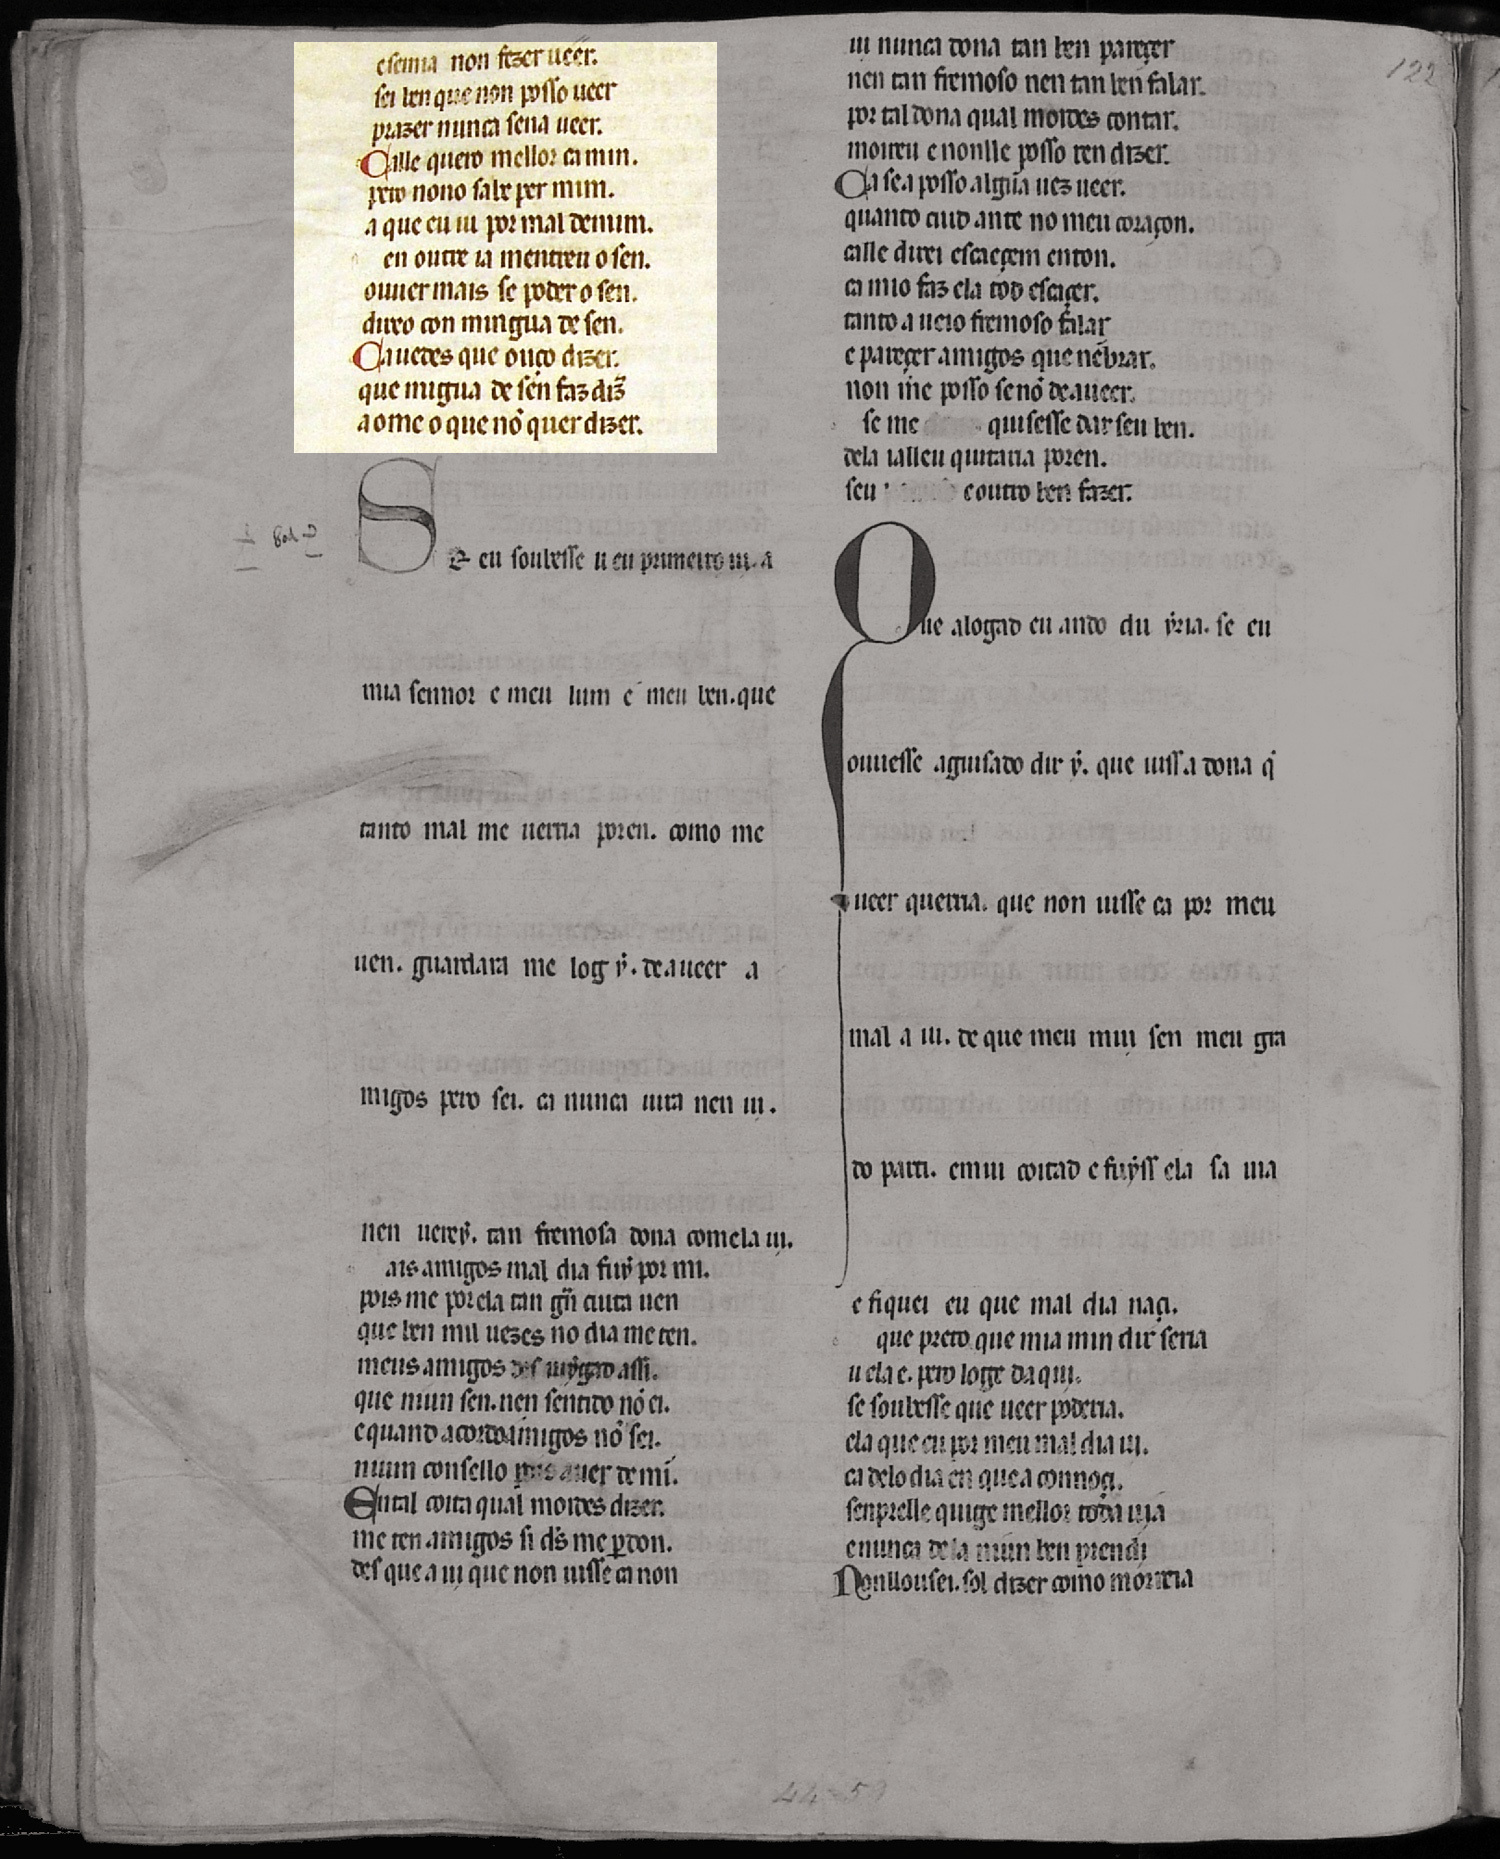 esenna non fezer ueer.
sei ben que non posso ueer
prazer nunca sena ueer.
Calle quero mellor ca min.
pero nono sabe per mim.
a que eu ui por mal demim.
en outre ia mentreu o sen.
ouuer mais se poder o sen.
duro con mingua de sen.
Cauedes que ouço dizer.
que migua de sen faz diz̃
aome o que nõ quer dizer.
Se eu soubesse u eu primeiro ui. a
mia sennor e meu lum e meu ben. que
tanto mal me uerria poren. como me
uen. guardara me log ẏ. de a ueer a
migos pero sei. ca nunca uira nen ui.
nen uereẏ. tan fremosa dona comela ui.
ais amigos mal dia fuẏ por mi.
pois me por ela tan gñ cuita uen
que ben mil uezes no dia me ten.
meus amigos des assi.
que niun sen. nen sentido nõ ei.
e quand acordo amigos nõ sei.
niuun consello auer de mi.
En tal coita qual moides dizer.
me ten amigos si ds̃ me ꝑdon.
des que a ui que non uisse ca non
ui nunca dona tan ben pareçer
nen tan fremoso nen tan ben falar.
por tal dona qual moides contar.
moireu e nonlle posso ren dizer.
Ca se a posso algũa uez ueer.
quanto cuid ante no meu coraçon.
ca lle direi escaeçem enton.
ca mio faz ela tod escaçer.
tanto a ueio fremoso falar
e pareçer amigos que nẽbrar.
non me posso senõ de a ueer.
se me quisesse dar seu ben.
dela ialleu quitaria poren.
seu e outro ben fazer.
Que alogad eu ando du ẏria. se eu
ouuesse aguisado dir ẏ. que uiss a dona q̃
ueer querria. que non uisse ca por meu
mal a ui. de que meu mui sen meu gra
do parti. e mui coitad e fuẏss ela sa uia
e fiquei eu que mal dia naçi.
que preto que mia min dir seria
u ela e. pero loge daqui.
se soubesse que ueer poderia.
ela que eu por meu mal dia ui.
ca delo dia en que a connoçi.
senprelle quige mellor toda uia
e nunca dela niun ben prendi
Non llousei. sol dizer como morreria
122
44-59